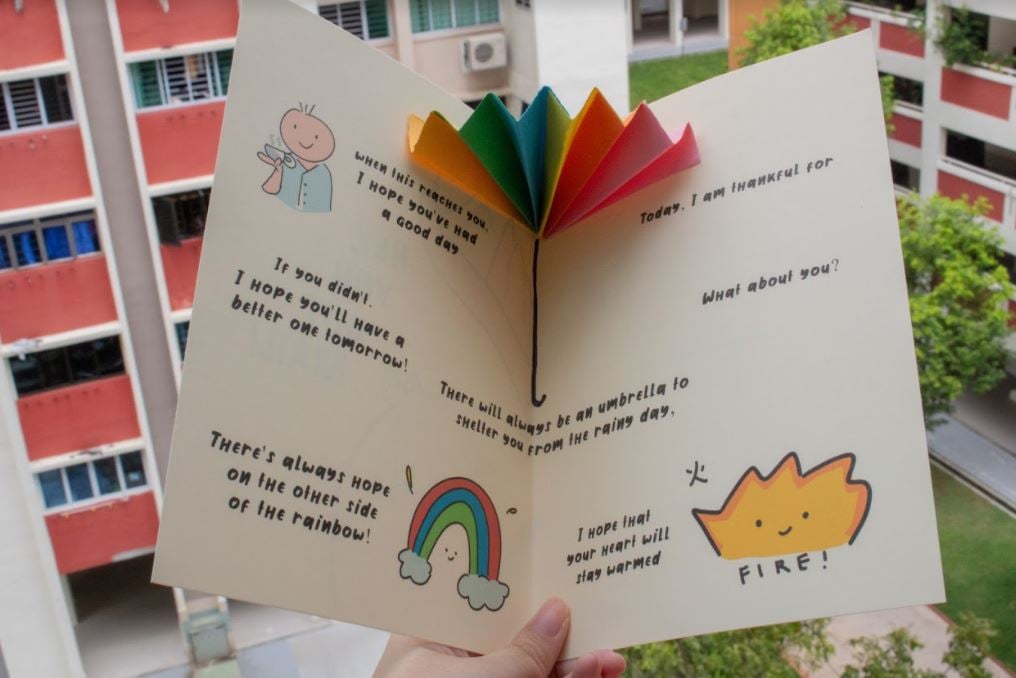 When this reaches you,
I hope you've had
a good day
If you didn't,
I hope you'll have a
better one tomorrow!
There's always hope
on the other side
of the rainbow!
Today, I am thankful for
What about you?
There will always be an umbrella to
shelter you from the rainy day,
I hope that
your heart will
stay warmed
火
FIRE!